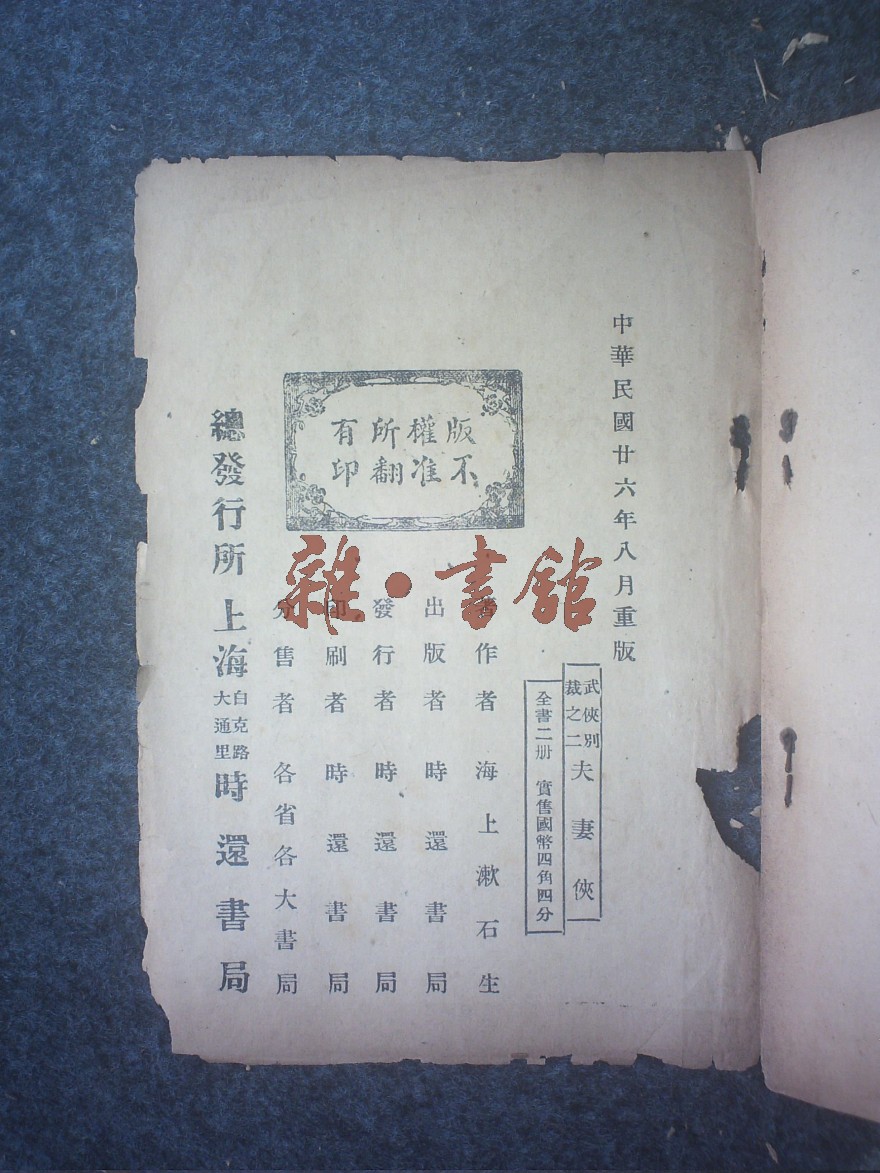 中華民國廿六年八月重版
武俠別裁之二 夫妻俠
全書二册 實售國幣四角四分
版權所有
不准翻印
著作者 海上漱石生
出版者 時還書局
發行者 時還書局
印刷者 時還書局
分售者 各省各大書局
總發行所 上海白克路大通里 時還書局
雜·書館